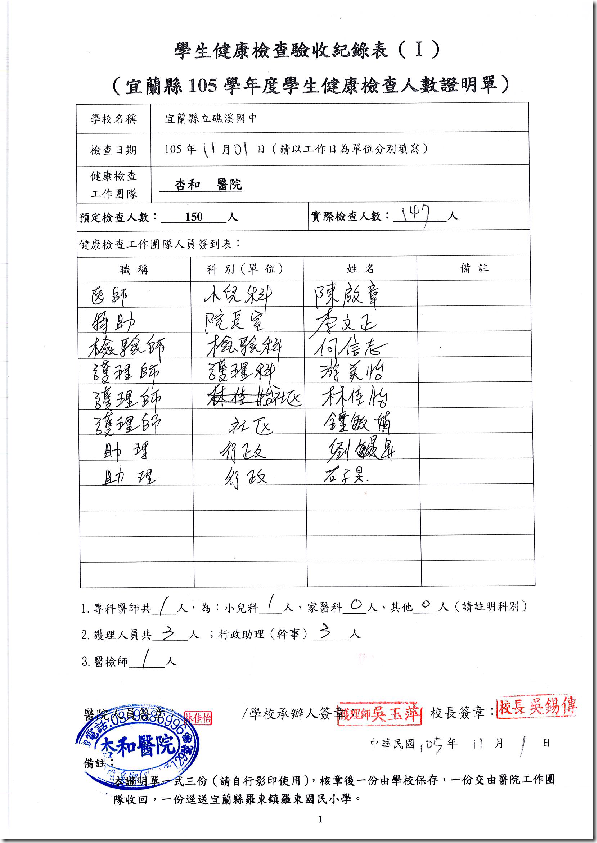 學生健康檢查驗收紀錄表（I）
（宜蘭縣 105 學年度學生健康檢查人數證明單）
學校名稱 宜蘭縣立礁溪國中
檢查日期 105 年 11 月 01 日（請以工作日為單位分別填寫）
健康檢查
工作團隊 杏和 醫院
預定檢查人數： 150 人 實際檢查人數： 147 人
健康檢查工作團隊人員簽到表：
職稱 科別（單位） 姓名 備註
医師 小兒科 陳啟章
特助 院長室 李文正
檢驗師 檢驗科 何信志
護理師 護理科 游美怡
護理師 社区 林佳怡
護理師 社区 鐘敏
助理 行政 劉
助理 行政
1.專科醫師共 1 人，為：小兒科 1 人、家醫科 0 人、其他 0 人（請註明科別）
2.護理人員共 3 人；行政助理（幹事） 3 人
3.醫檢師 1 人
林佳怡 /學校承辦人簽章 護理師 吳玉萍 校長簽章： 校長 吳錫傳
杏和醫院
中華民國 105 年 11 月 1 日
備註：
本證明單一式三份（請自行影印使用），核章後一份由學校保存，一份交由醫院工作團
隊收回，一份逕送宜蘭縣羅東鎮羅東國民小學。
1